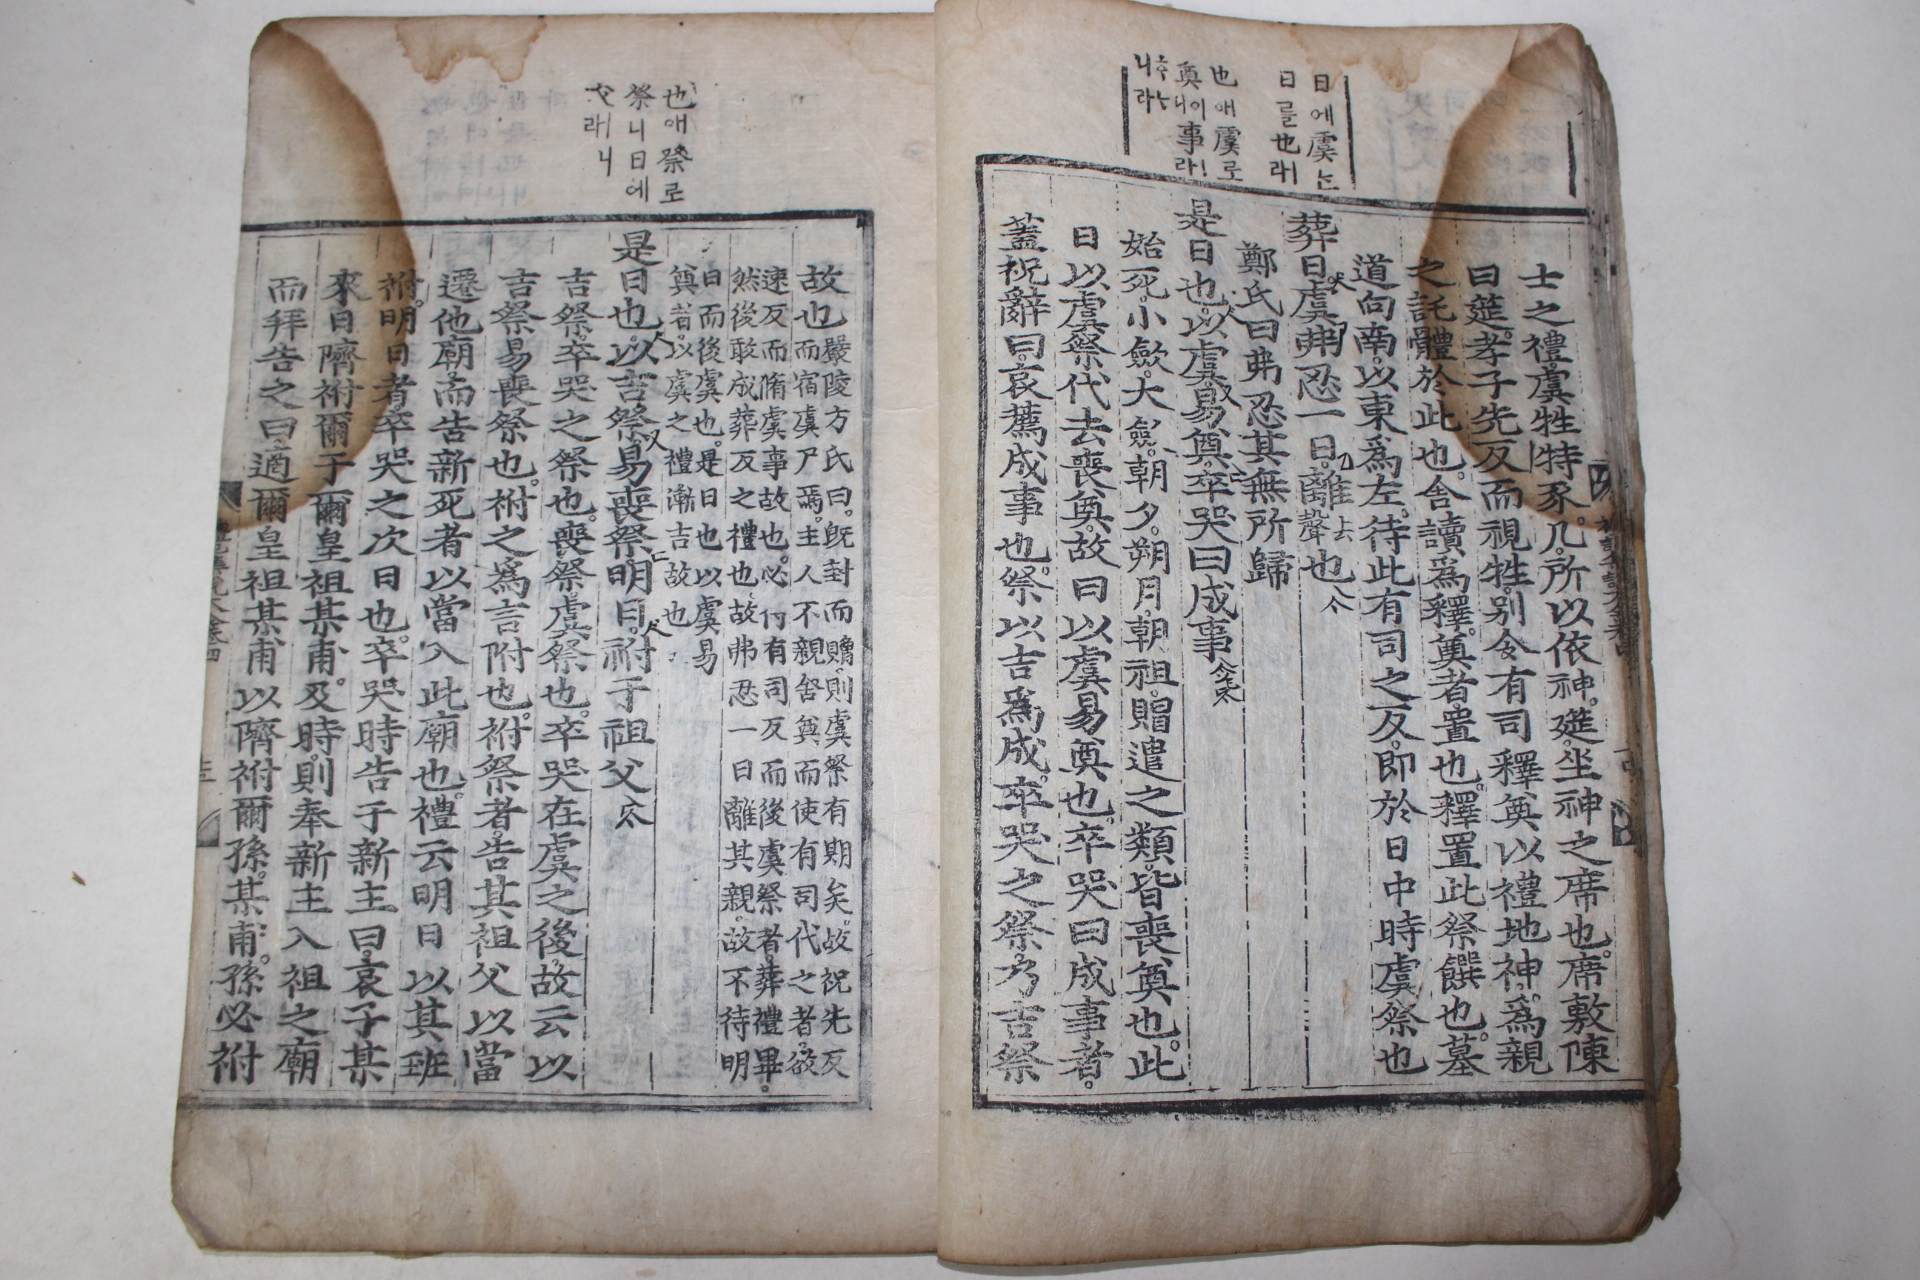 日에虞는
日를也라
也애虞로
奠이事라
士之禮虞牲特豕几所以依神筵坐神之席也席敷陳
曰筵孝子先反而視牲別令有司釋奠以禮地神爲親
之託體於此也舍讀爲釋奠者置也釋置此祭饌也墓
道向南以東爲左待此有司之反卽於日中時虞祭也
葬日虞弗忍一日離去聲也
鄭氏曰弗忍其無所歸
是日也以虞易奠卒哭曰成事
始死小斂大斂朝夕朔月朝祖賵遣之類皆喪奠也此
日以虞祭代去喪奠故曰以虞易奠也卒哭曰成事者
蓋祝辭曰哀薦成事也祭以吉爲成卒哭之祭乃吉祭
也애祭로
祭니日에
故也嚴陵方氏曰旣封而贈則虞祭有期矣故祝先反
而宿虞尸焉主人不親舍奠而使有司代之者欲
速反而脩虞事故也必何有司反而後虞祭者葬禮畢
然後敢成葬反之禮也故弗忍一日離其親故不待明
日而後虞也是日也以虞易
奠者以虞之禮漸吉故也
是日也以吉祭易喪祭明日祔于祖父
吉祭卒哭之祭也喪祭虞祭也卒哭在虞之後故云以
吉祭易喪祭也祔之爲言附也祔祭者告其祖父以當
遷他廟而告新死者以當入此廟也禮云明日以其班
祔明日者卒哭之次日也卒哭時告于新主曰哀子某
來日隮祔爾于爾皇祖某甫及時則奉新主入祖之廟
而拜告之曰適爾皇祖某甫以隮祔爾孫某甫孫必祔